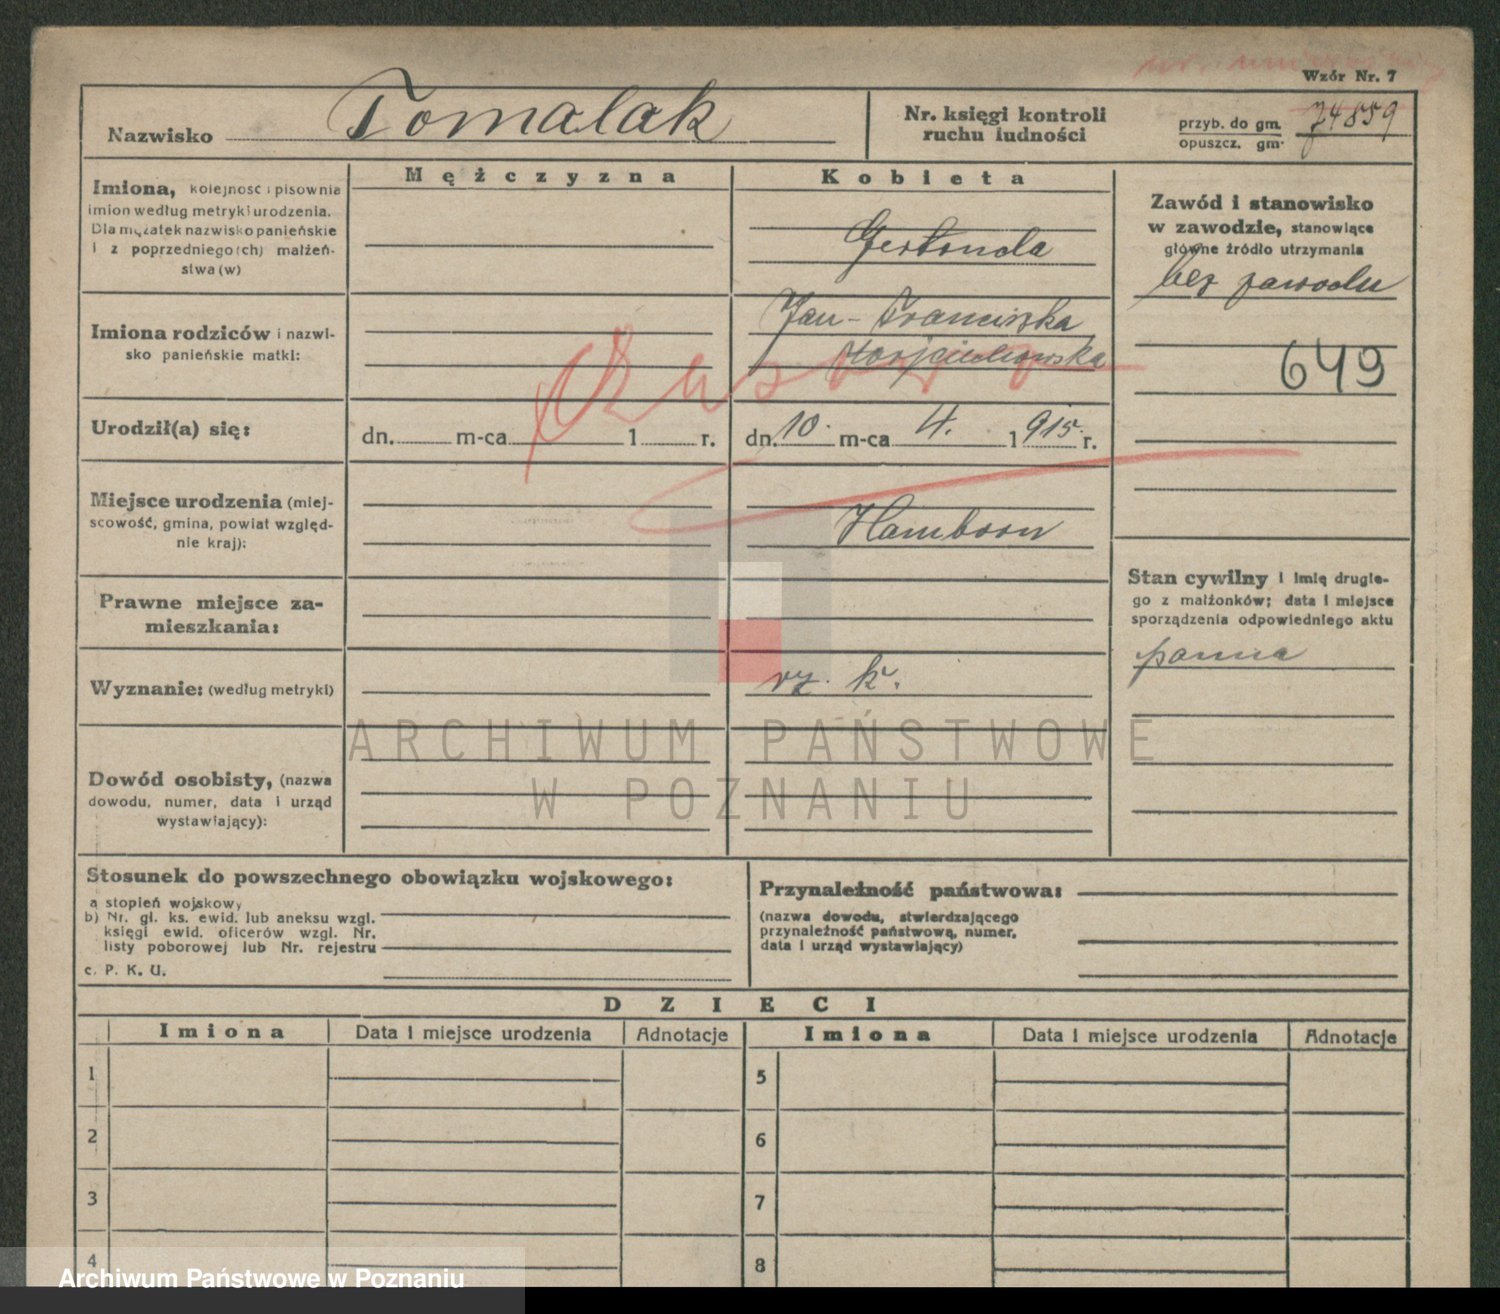 Wzór Nr. 7
Nazwisko Tomalak
Nr. księgi kontroli
ruchu ludności
przyb. do gm.
opuszcz. gm.
74859
Mężczyzna
Kobieta
Imiona, kolejność i pisownia
imion według metryki urodzenia.
Dla mężatek nazwisko panieńskie
i z poprzedniego(ch) małżeń-
stwa (w)
Gertruda
Zawód i stanowisko
w zawodzie, stanowiące
główne źródło utrzymania
bez zawodu
649
Imiona rodziców i nazwi-
sko panieńskie matki:
Jan - Franciszka
Wojciechowska
Urodził(a) się:
dn. m-ca 1 r.
dn. 10. m-ca 4. 1915 r.
Miejsce urodzenia (miej-
scowość, gmina, powiat względ-
nie kraj):
Hamborn
Prawne miejsce za-
mieszkania:
Stan cywilny i imię drugie-
go z małżonków; data i miejsce
sporządzenia odpowiedniego aktu
panna
Wyznanie: (według metryki)
rz. k.
ARCHIWUM PAŃSTWOWE
W POZNANIU
Dowód osobisty, (nazwa
dowodu, numer, data i urząd
wystawiający):
Stosunek do powszechnego obowiązku wojskowego:
a stopień wojskowy
b) Nr. gł. ks. ewid. lub aneksu wzgl.
księgi ewid. oficerów wzgl. Nr.
listy poborowej lub Nr. rejestru
c. P. K. U.
Przynależność państwowa:
(nazwa dowodu, stwierdzającego
przynależność państwową, numer,
data i urząd wystawiający)
DZIECI
Imiona Data i miejsce urodzenia Adnotacje Imiona Data i miejsce urodzenia Adnotacje
1 5
2 6
3 7
4 8
Archiwum Państwowe w Poznaniu